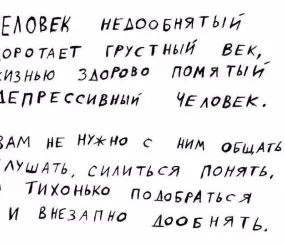 ЕЛОВЕК НЕДООБНЯТЫЙ
ОРОТАЕТ ГРУСТНЫЙ ВЕК,
ИЗНЬЮ ЗДОРОВО ПОМЯТЫЙ
ДЕПРЕССИВНЫЙ ЧЕЛОВЕК.
ВАМ НЕ НУЖНО С НИМ ОБЩАТЬ
ЛУШАТЬ, СИЛИТЬСЯ ПОНЯТЬ,
ТИХОНЬКО ПОДОБРАТЬСЯ
И ВНЕЗАПНО ДООБНЯТЬ.